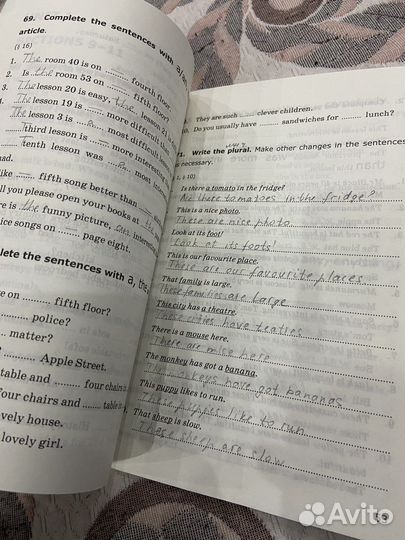 69. Complete the sentences with a, an
article.
(§ 16)
1. The room 40 is on ........ fourth floor.
2. Is the room 53 on ........ fifth floor?
3. The lesson 20 is easy, the lesson 21 is
The lesson 19 is ........ more difficult tha
The lesson 3 is ........ most difficult
third lesson is ........ more interesting
tenth lesson was ........ most interest
ad.
like ........ fifth song better than
ll you please open your books at the
re is the funny picture, an interest
ice songs on ........ page eight.
plete the sentences with a, the,
e on ........ fifth floor?
........ police?
........ matter?
........ Apple Street.
table and ........ four chairs in
four chairs and ........ table in
ovely house.
lovely girl.
They are such ........ clever children.
10. Do you usually have ........ sandwiches for ........ lunch?
71. Write the plural. Make other changes in the sentences
as necessary.
1, § 10)
Is there a tomato in the fridge?
Are there tomatoes in the fridge?
This is a nice photo.
These are nice photo
Look at its foot!
Look at its foots!
This is our favourite place.
These are our favourite places
That family is large.
These families are large
This city has a theatre.
These cities have teatres
There is a mouse here.
There are mise here
The monkey has got a banana.
The monkeys have got bananas
This puppy likes to run.
These puppies like to run
That sheep is slow.
Those sheep are slow
55
Avito